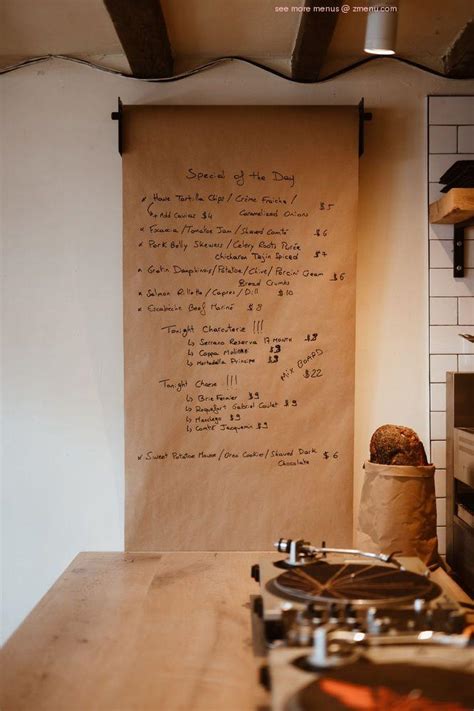 see more menus @ zmenu.com
Special of the Day
x House Tortilla Chips / Crème Fraîche / $5
↳ + Add Caviar $4 Caramelized Onions
x Focaccia / Tomatoe Jam / Shaved Comté $6
x Pork Belly Skewers / Celery Roots Purée $7
Chicharon Tajin Spiced
x Gratin Dauphinois / Potatoe / Chive / Porcini Cream $6
Bread Crumbs
x Salmon Rillette / Capres / Dill $10
x Escabeche Beef Mariné $8
Tonight Charcuterie !!!
↳ Serrano Reserva 17 MONTH $8
↳ Coppa $9
↳ Mortadella Principe $8
MIX BOARD
$22
Tonight Cheese !!!
↳ Brie Fermier $9
↳ Roquefort Gabriel Coulet $9
↳ Manchego $9
↳ Comté Jacquemin $9
x Sweet Potatoe Mousse / Oreo Cookie / Shaved Dark $6
Chocolate